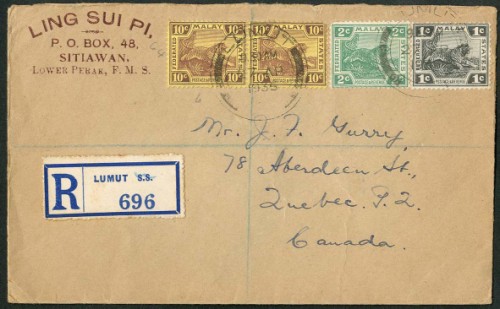 LING SUI PI.
P. O. BOX, 48,
SITIAWAN,
LOWER PERAK, F. M. S.
10c MALAY 10c
FEDERATED STATES
10c MALAY 10c
FEDERATED STATES
2c MALAY 2c
FEDERATED STATES
1c MALAY 1c
FEDERATED STATES
LUMUT
1935
R LUMUT S.S.
696
Mr. J. F. Gurry,
78 Aberdeen St.,
Quebec. P.Q.
Canada.